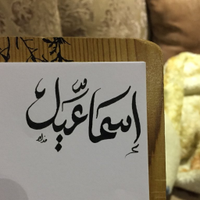 إسماعيل